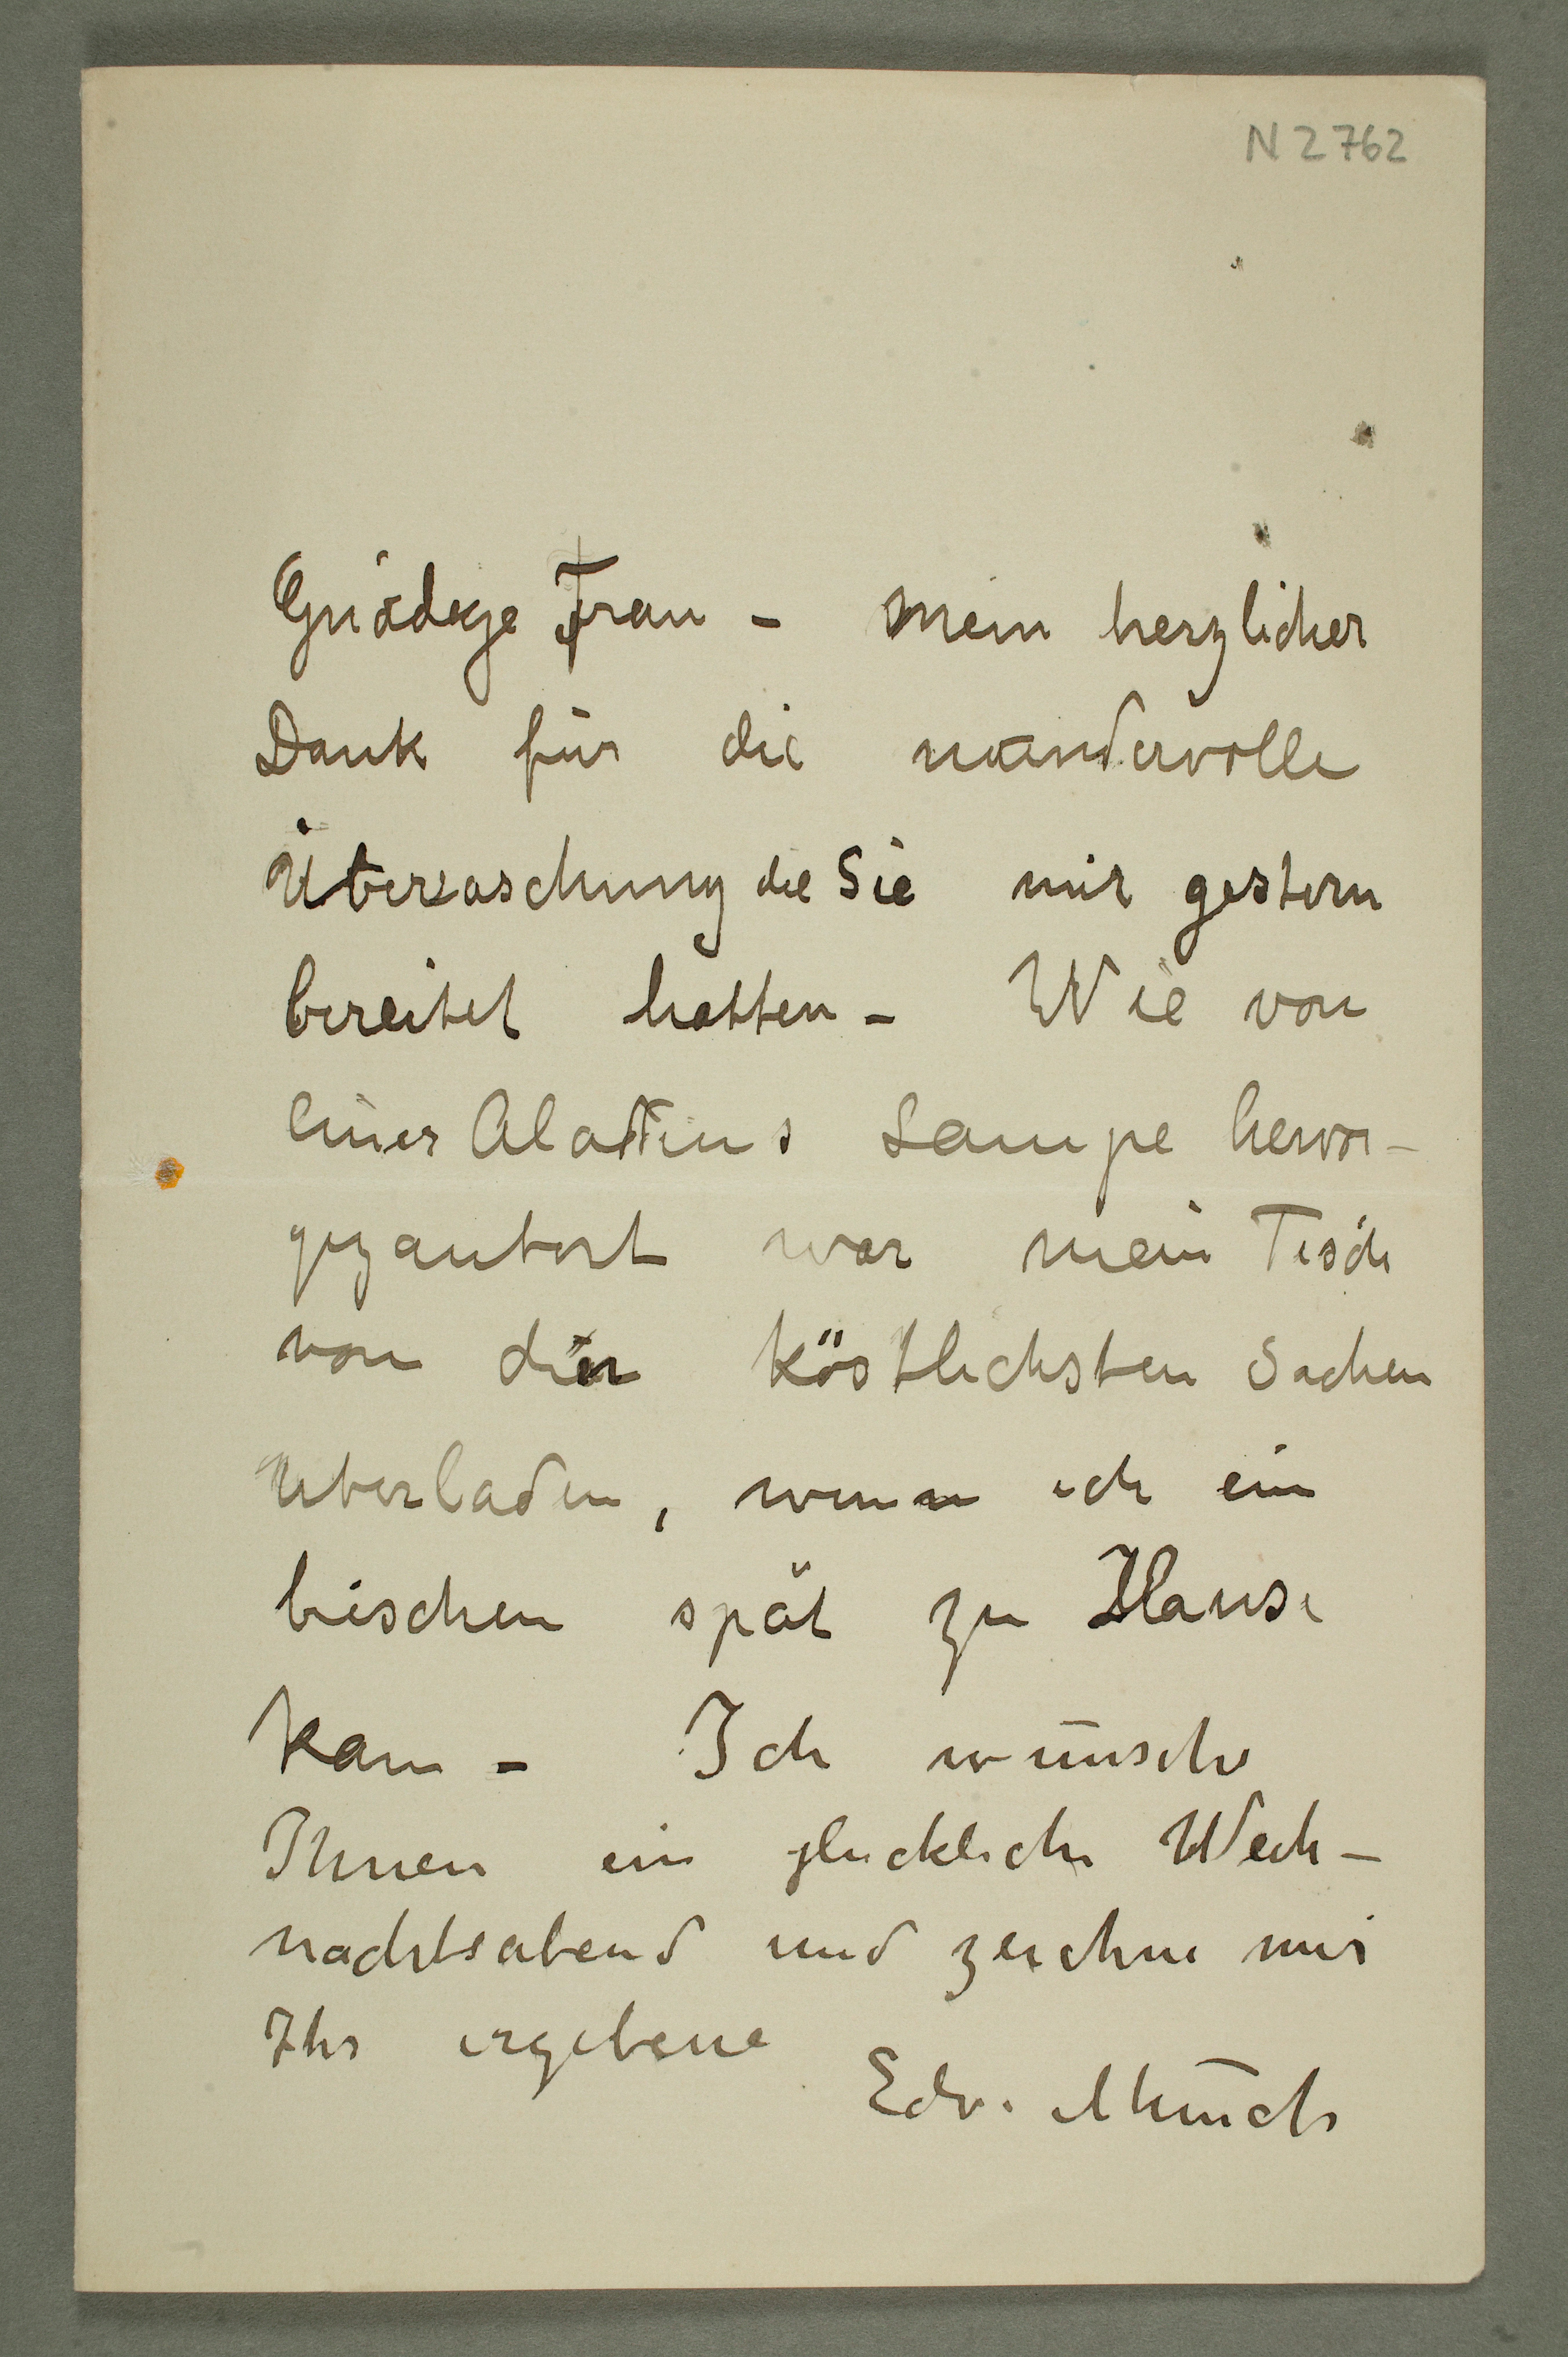 N 2762
Gnädige Frau – Mein herzlicher
Dank für die wundervolle
Überraschung die Sie mir gestern
bereitet hatten – Wie von
einer Aladins Lampe hervor–
gezaubert war mein Tisch
von den köstlichsten Sachen
uberladen, wenn ich ein
bischen spät zu Hause
kam – Ich wünsche
Ihnen ein gluckliche Weih–
nachtsabend und zeichne mir
Ihr ergebene
Edv. Munch